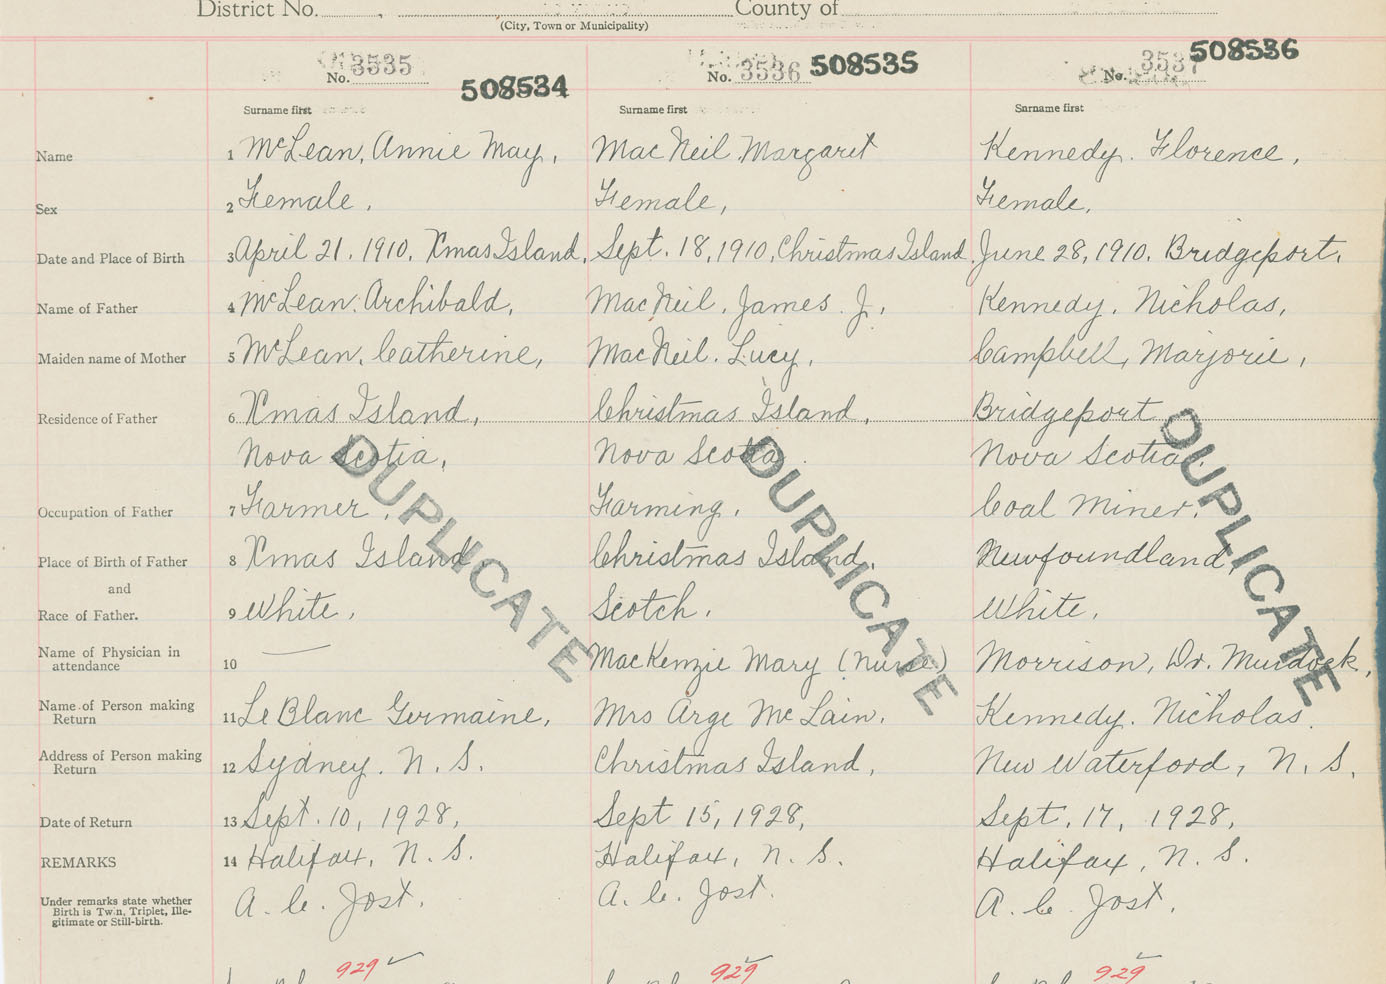 District No. , County of
(City, Town or Municipality)
No. 3535 508534 No. 3536 508535 No. 3537 508536
Surname first Surname first Surname first
Name 1 McLean, Annie May, MacNeil Margaret Kennedy. Florence,
Sex 2 Female, Female, Female,
Date and Place of Birth 3 April 21, 1910, Xmas Island, Sept. 18, 1910, Christmas Island, June 28, 1910. Bridgeport,
Name of Father 4 McLean. Archibald, MacNeil, James J, Kennedy, Nicholas,
Maiden name of Mother 5 McLean, Catherine, MacNeil. Lucy, Campbell, Marjorie,
Residence of Father 6 Xmas Island, Christmas Island, Bridgeport
Nova Scotia, Nova Scotia. Nova Scotia.
Occupation of Father 7 Farmer, Farming, Coal Miner,
Place of Birth of Father 8 Xmas Island, Christmas Island, Newfoundland,
and
Race of Father. 9 White, Scotch, White,
Name of Physician in
attendance 10 MacKenzie Mary (Nurse) Morrison, Dr. Murdock,
Name of Person making
Return 11 LeBlanc Germaine, Mrs Arge McLain, Kennedy. Nicholas.
Address of Person making
Return 12 Sydney. N. S. Christmas Island, New Waterford, N. S.
Date of Return 13 Sept. 10, 1928, Sept 15, 1928, Sept. 17, 1928,
REMARKS 14 Halifax, N. S. Halifax, N. S. Halifax, N. S.
Under remarks state whether
Birth is Twin, Triplet, Ille-
gitimate or Still-birth. A. C. Jost. A. C. Jost. A. C. Jost.
DUPLICATE DUPLICATE DUPLICATE
929 929 929